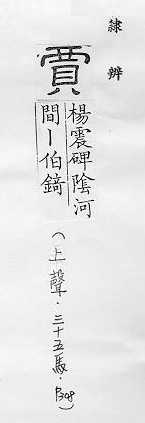 隸辨
賈
楊震碑陰河
間｜伯錡
(上聲·三十五馬·P308)